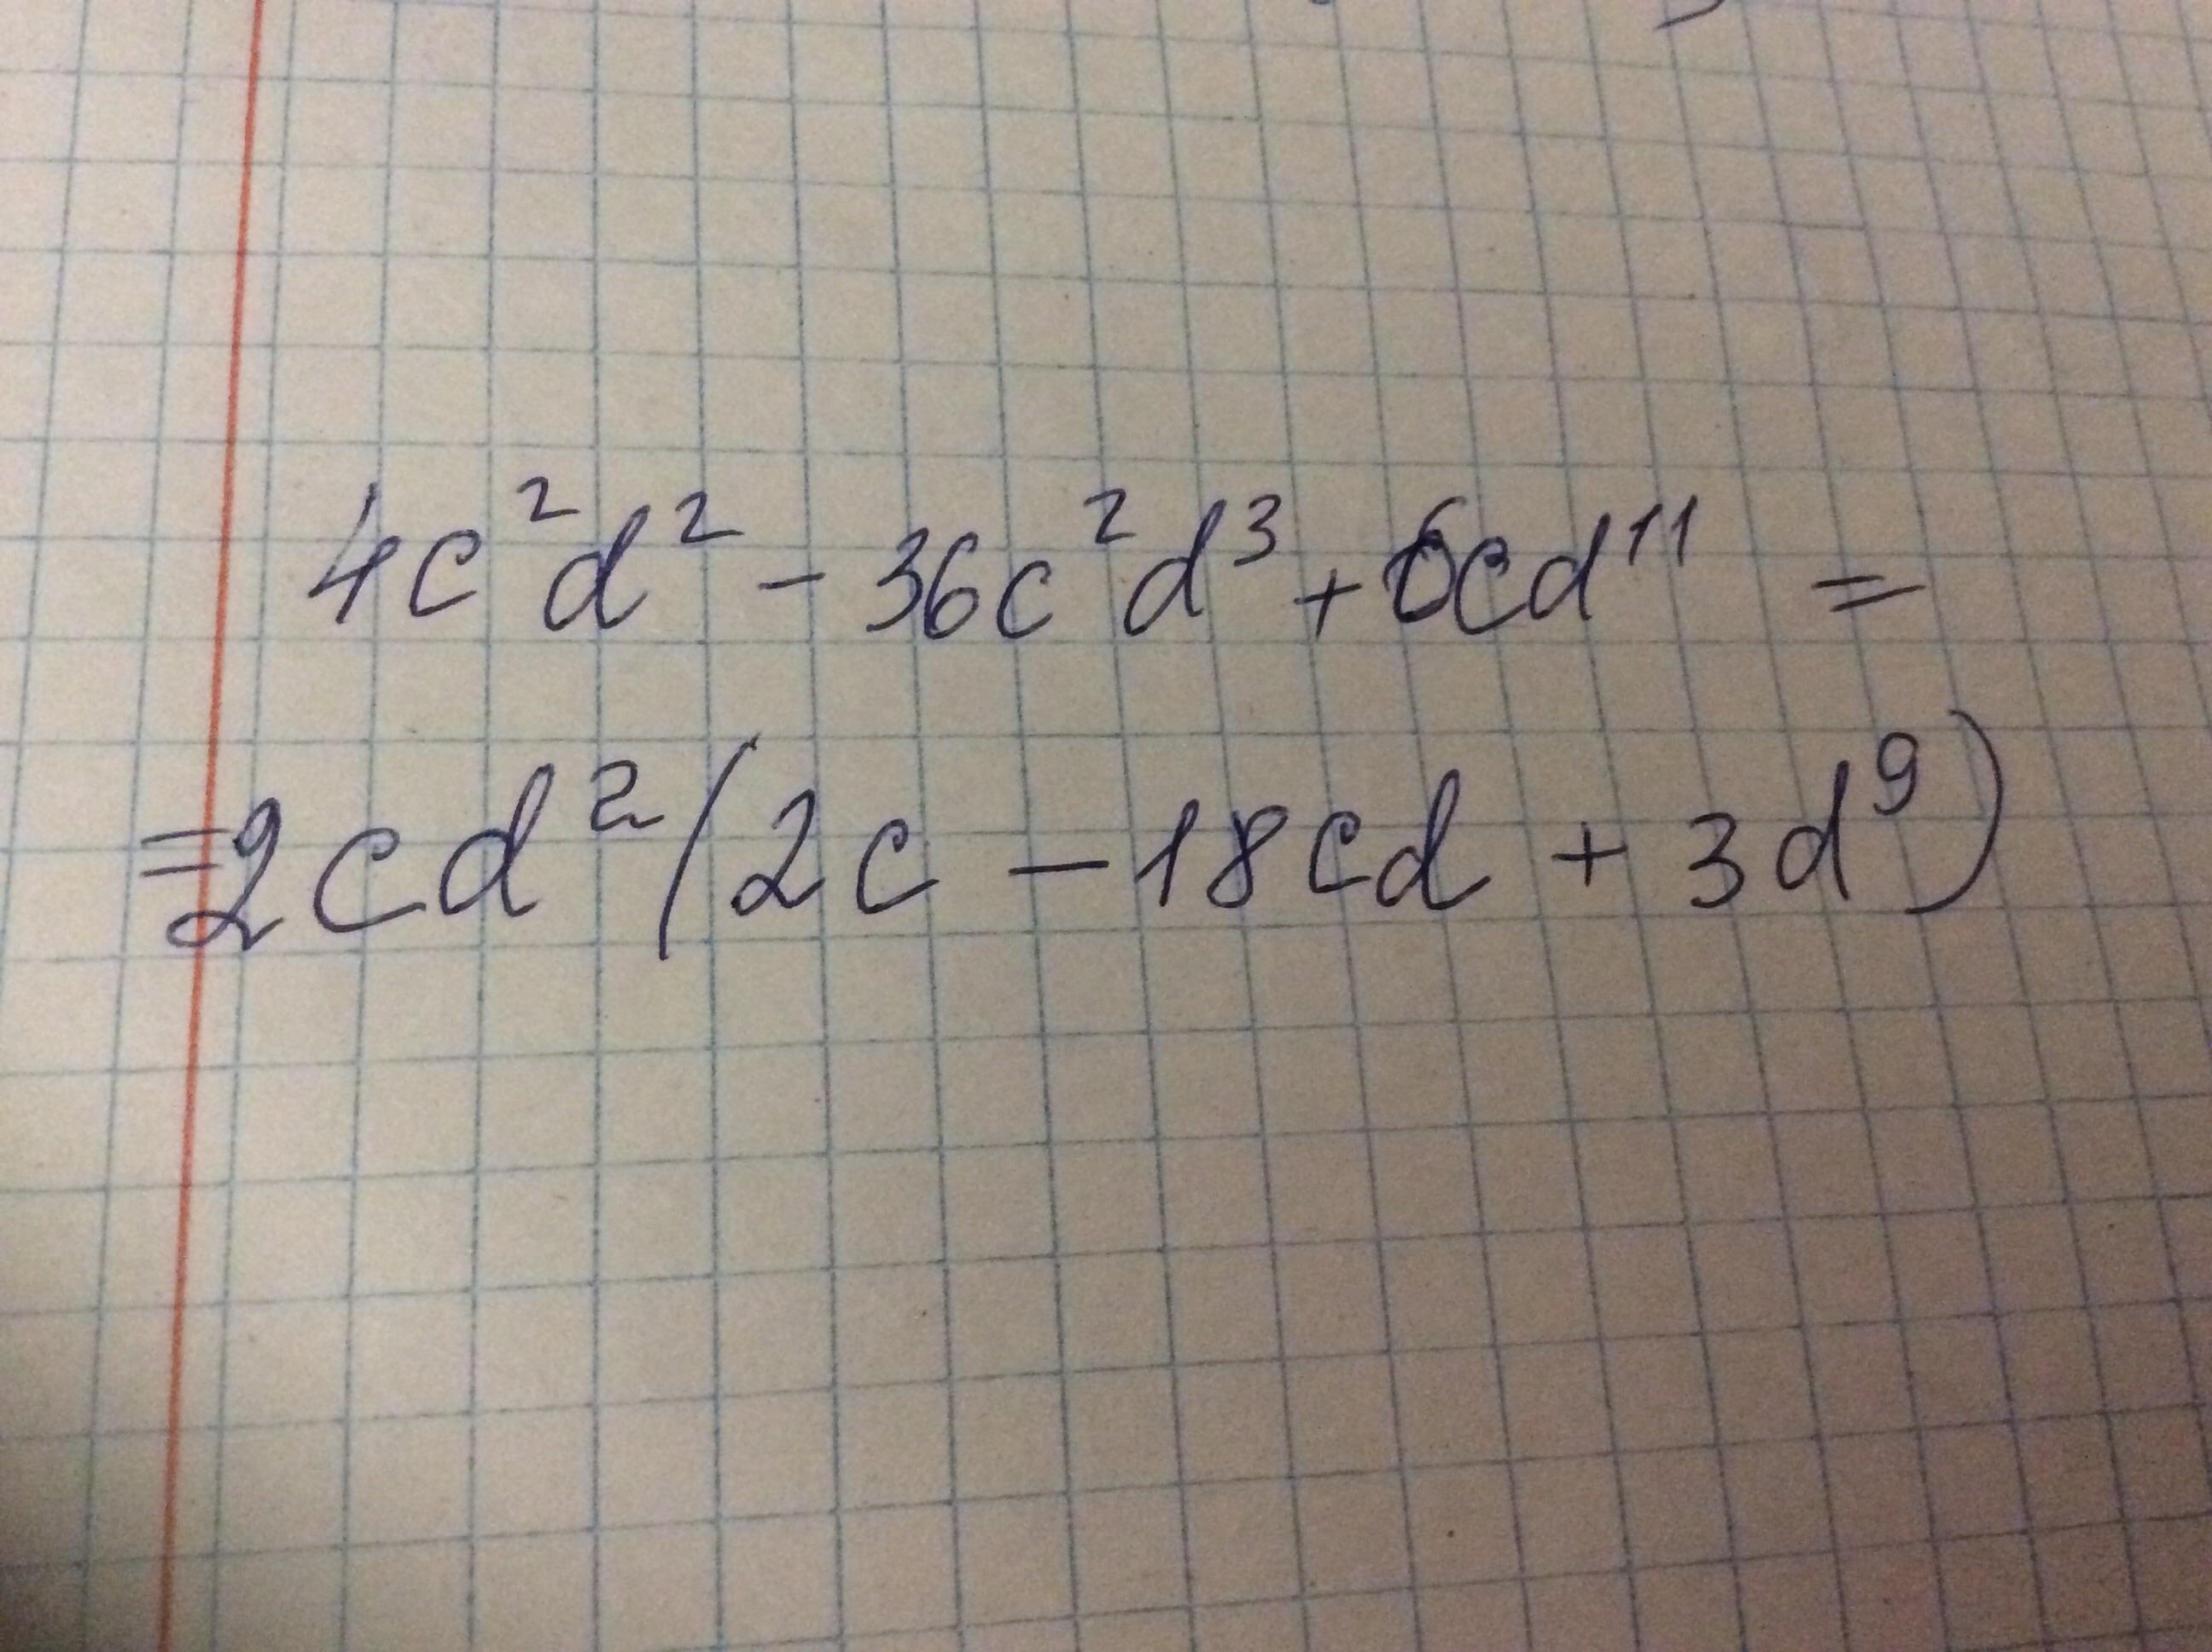 4c²d² - 36c²d³ + 6cd¹¹ =
=2cd²(2c - 18cd + 3d⁹)